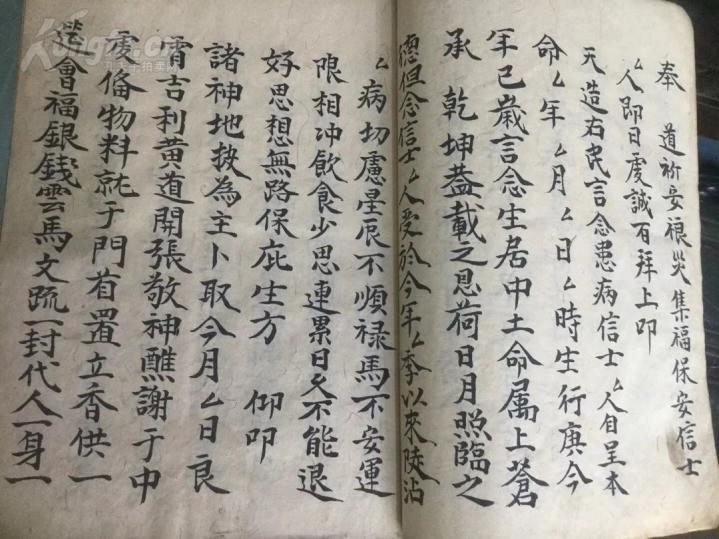 奉　道祈安禳災集福保安信士
厶人即日虔誠百拜上叩
天造右民言念患病信士厶人自呈本
命厶年厶月厶日厶時生行庚今
年已歲言念生居中土命属上蒼
承　乾坤蓋載之恩荷日月照臨之
德但念信士厶人受於今年厶季以來陡沾
厶病切慮星辰不順禄馬不安運
限相冲飲食少思連累日久不能退
好思想無路保庇生方　仰叩
諸神地拔為主卜取今月厶日良
宵吉利黄道開張敬神醮謝于中
虔俻物料就于門首置立香供一
筵會福銀錢雲馬文疏一封代人一身一